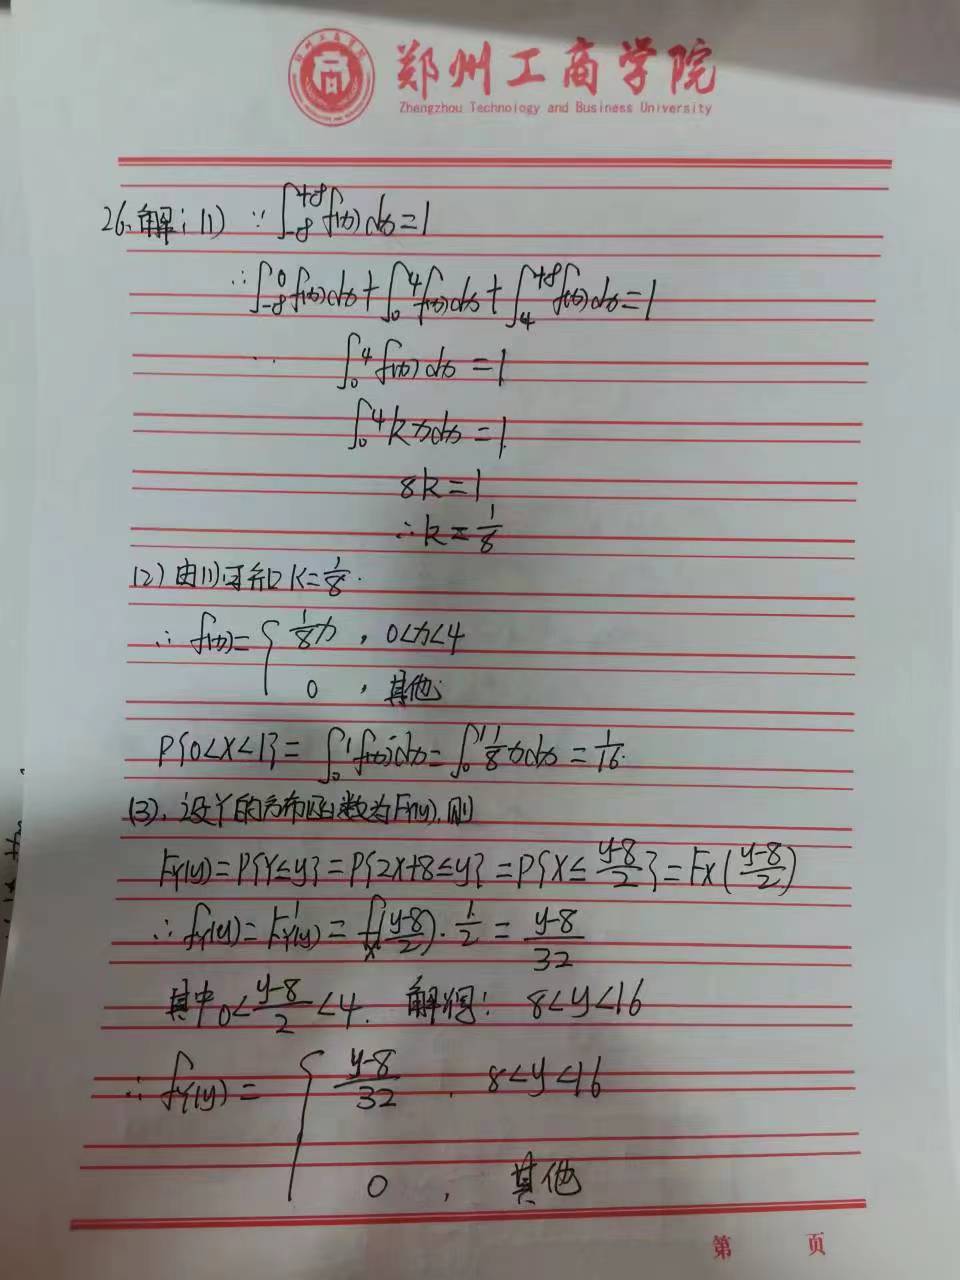 郑州工商学院
Zhengzhou Technology and Business University
26、解：(1) ∵ ∫_{-∞}^{+∞} f(x)dx=1
∴ ∫_{-∞}^{0} f(x)dx+∫_{0}^{4} f(x)dx+∫_{4}^{+∞} f(x)dx=1
∫_{0}^{4} f(x)dx=1
∫_{0}^{4} kxdx=1
8k=1
∴k=1/8
(2) 由(1)可知 k=1/8.
∴ f(x)={ 1/8 x , 0<x<4
0 , 其他.
P{0<X<1}=∫_{0}^{1} f(x)dx=∫_{0}^{1} 1/8 xdx=1/16.
(3). 设Y的分布函数为F_Y(y), 则
F_Y(y)=P{Y≤y}=P{2X+8≤y}=P{X≤(y-8)/2}=F_X((y-8)/2)
∴ f_Y(y)=F'_Y(y)=f_X((y-8)/2)·1/2=(y-8)/32
其中 0<(y-8)/2<4. 解得： 8<y<16
∴ f_Y(y)={ (y-8)/32 , 8<y<16
0 , 其他
第 页